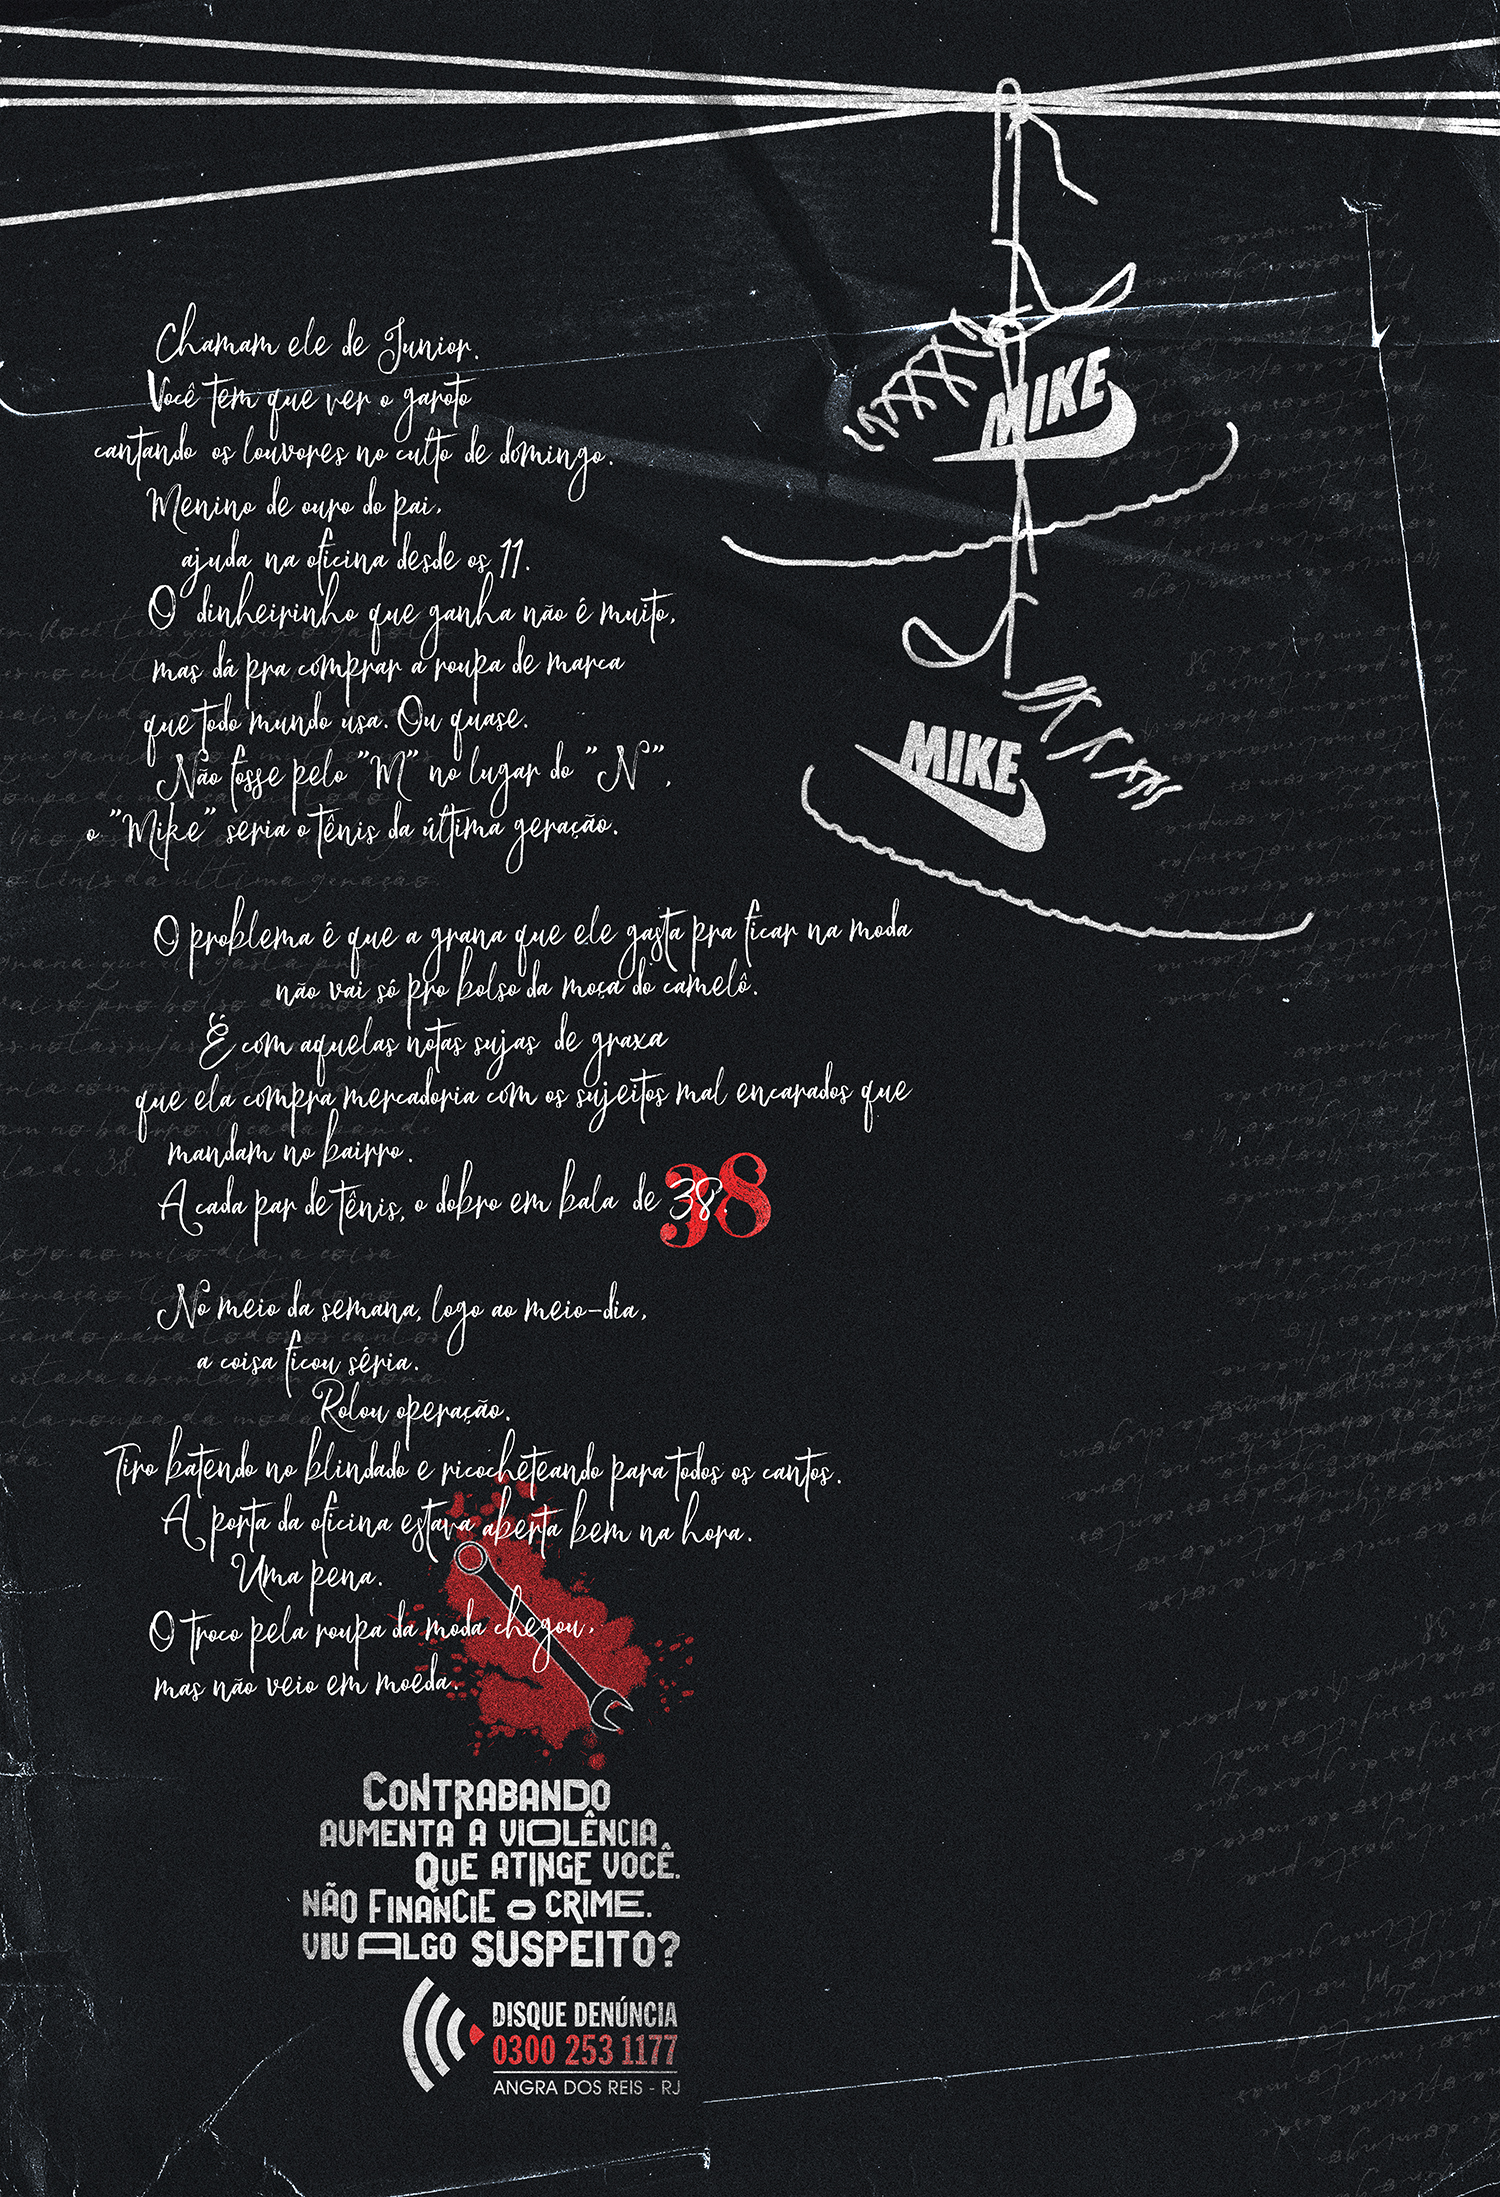 MIKE
MIKE
Chamam ele de Junior.
Você tem que ver o garoto
cantando os louvores no culto de domingo.
Menino de ouro do pai,
ajuda na oficina desde os 11.
O dinheirinho que ganha não é muito,
mas dá pra comprar a roupa de marca
que todo mundo usa. Ou quase.
Não fosse pelo "M" no lugar do "N",
o "Mike" seria o tênis da última geração.
O problema é que a grana que ele gasta pra ficar na moda
não vai só pro bolso da moça do camelô.
É com aquelas notas sujas de graxa
que ela compra mercadoria com os sujeitos mal encarados que
mandam no bairro.
A cada par de tênis, o dobro em bala de 38.
38
No meio da semana, logo ao meio-dia,
a coisa ficou séria.
Rolou operação.
Tiro batendo no blindado e ricocheteando para todos os cantos.
A porta da oficina estava aberta bem na hora.
Uma pena.
O troco pela roupa da moda chegou,
mas não veio em moeda.
CONTRABANDO
AUMENTA A VIOLÊNCIA
QUE ATINGE VOCÊ.
NÃO FINANCIE O CRIME.
VIU ALGO SUSPEITO?
DISQUE DENÚNCIA
0300 253 1177
ANGRA DOS REIS - RJ